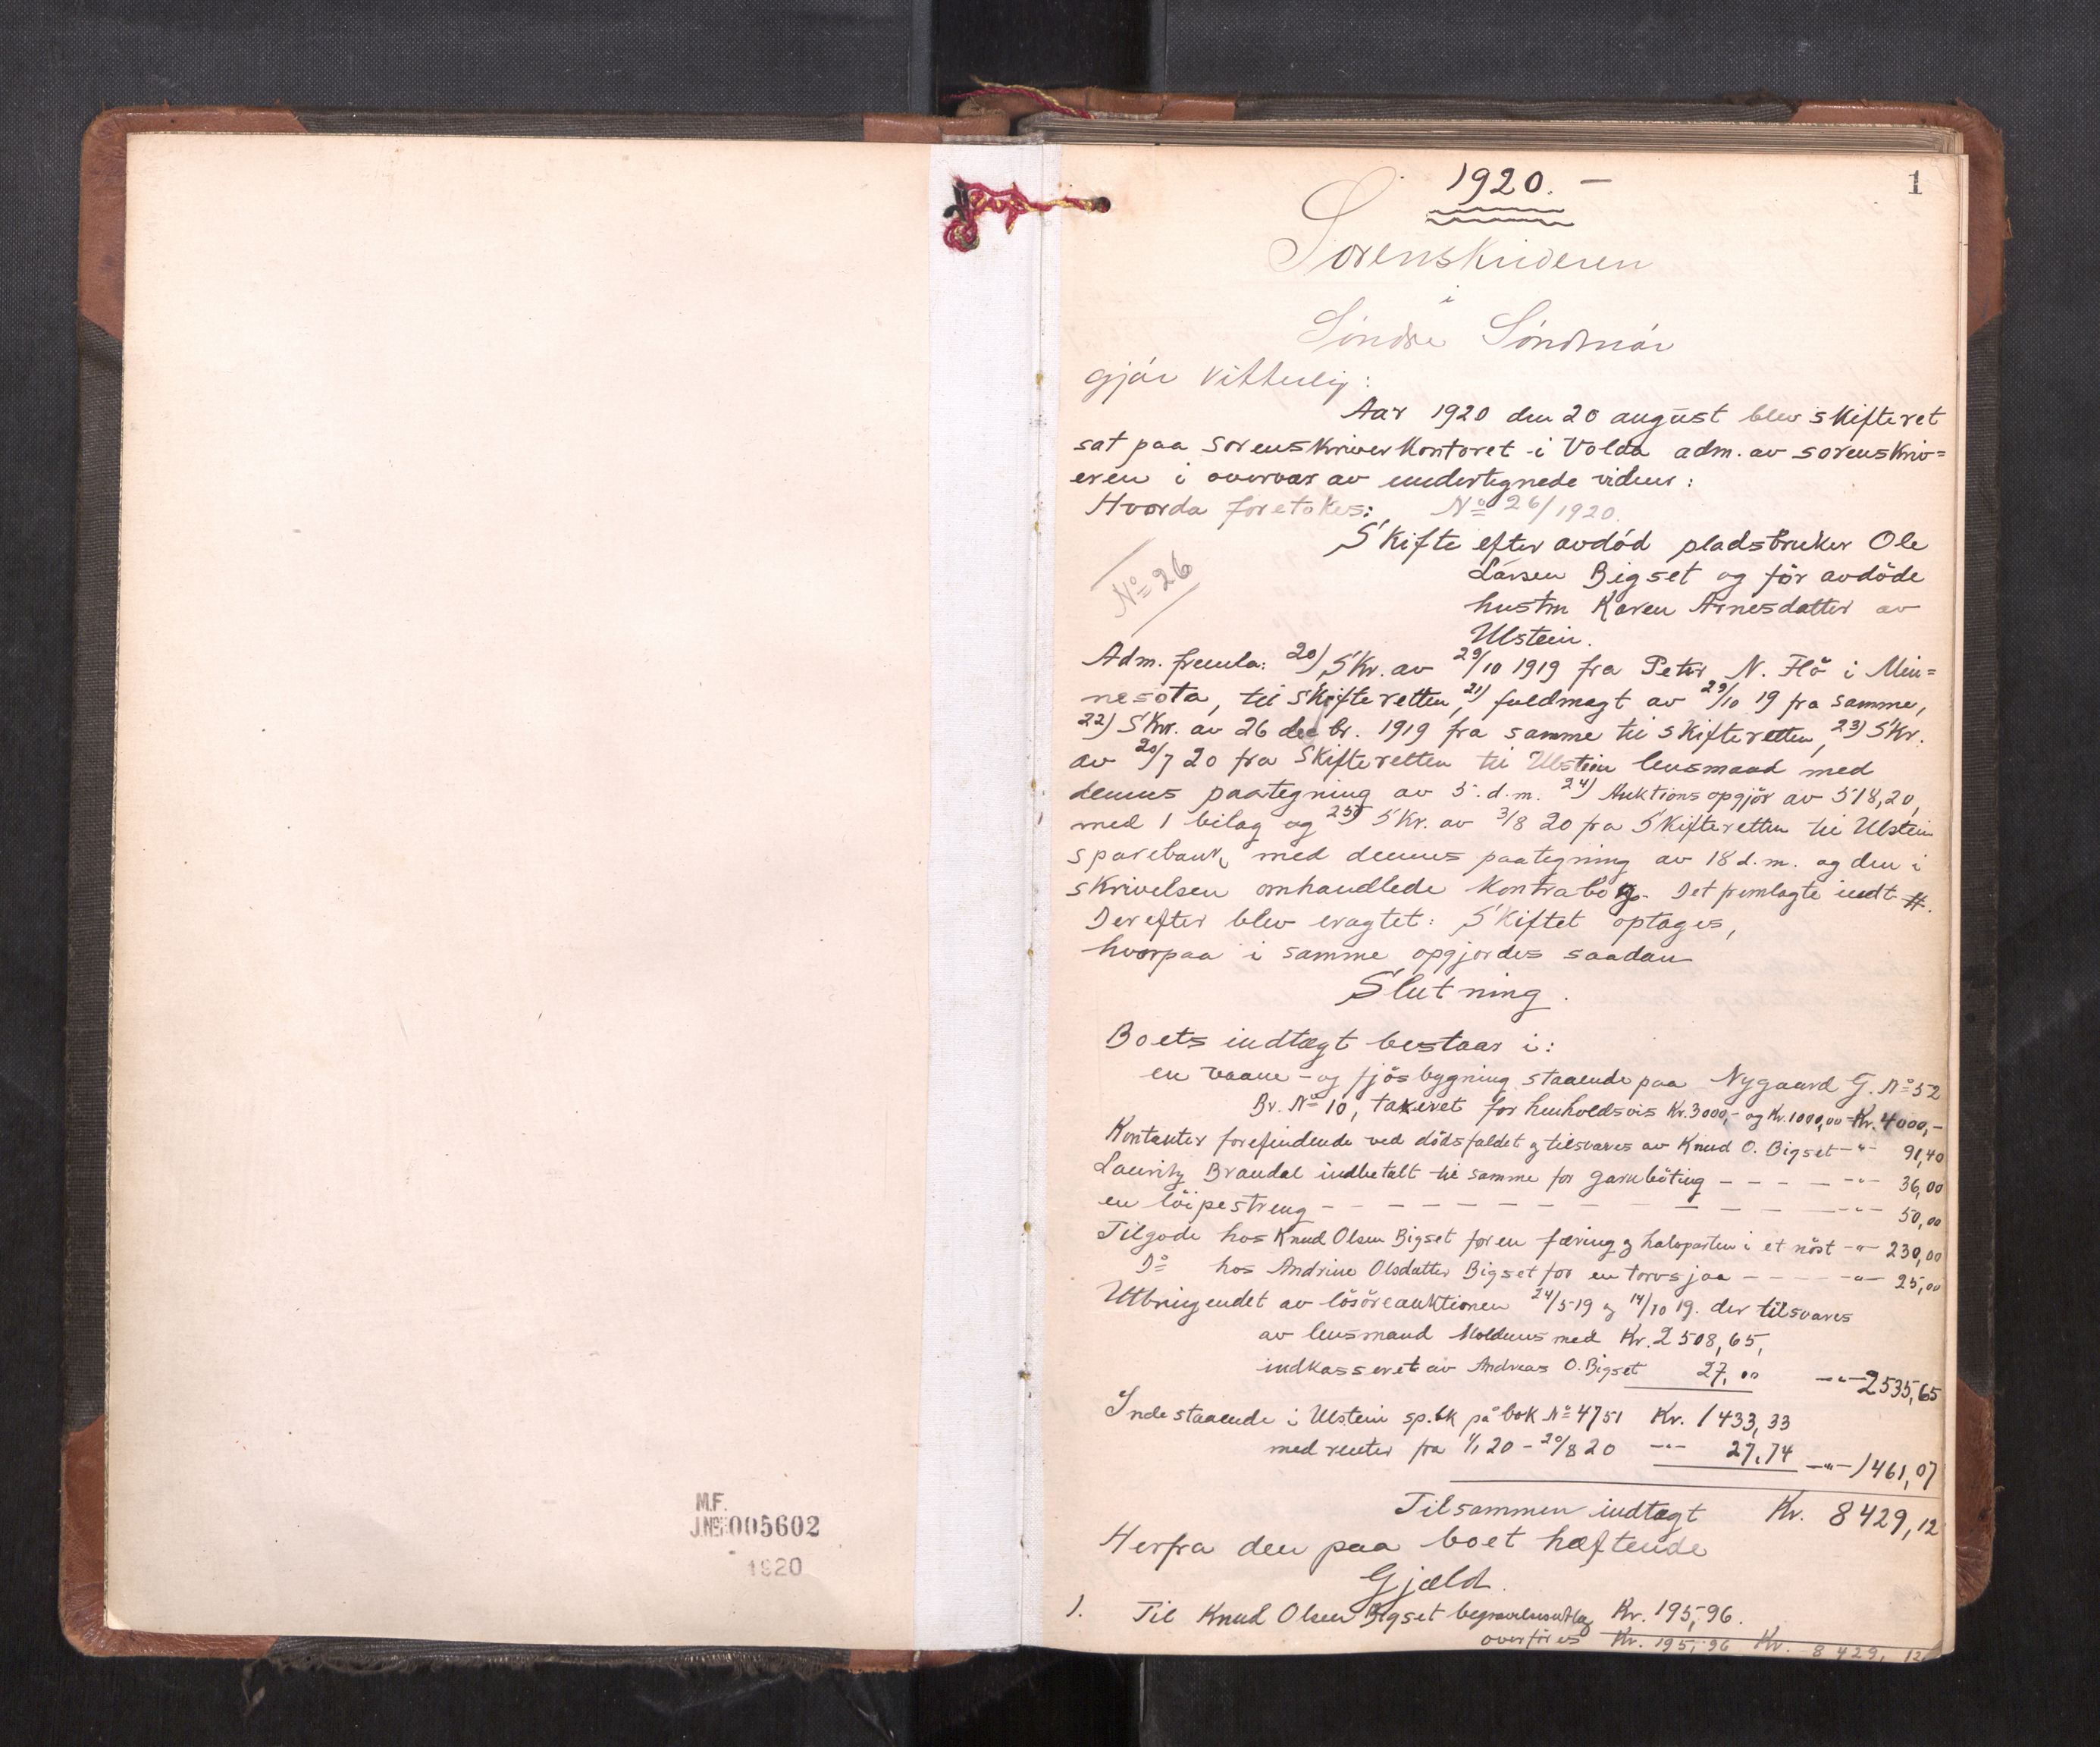 M.F.
J.No 005602
1920
1
1920. –
Sorenskriveren
i
Søndre Søndmør
gjør vitterlig:
Aar 1920 den 20 august blev skifteret
sat paa sorenskriverkontoret i Volda adm. av sorenskriv=
eren i overvær av undertegnede vidner:
Hvorda foretokes: No 26/1920.
Skifte efter avdød pladsbruker Ole
No 26
Larsen Bigset og før avdøde
hustru Karen Arnesdatter av
Ulstein.
Adm. fremla: 20) Skr. av 29/10 1919 fra Peter N. Flø i Min=
nesota, til skifteretten, 21) fuldmagt av 29/10 19 fra samme,
22) Skr. av 26 decbr. 1919 fra samme til skifteretten, 23) Skr.
av 20/7 20 fra skifteretten til Ulstein lensmand med
dennes paategning av 5.d.m. 24) Auktionsopgjør av 518,20,
med 1 bilag og 25) Skr. av 3/8 20 fra Skifteretten til Ulstein
sparebank, med dennes paategning av 18 d.m. og den i
skrivelsen omhandlede kontrabog. Det fremlagte indt #.
Derefter blev eragtet: Skiftet optages,
hvorpaa i samme opgjordes saadan
Slutning.
Boets indtægt bestaar i:
en vaane- og fjøsbygning staaende paa Nygaard G. No 52
Br. No 10, taxeret for henholdsvis Kr. 3000,- og Kr. 1000,00 = Kr. 4000,-
Kontanter forefindende ved dødsfaldet og tilsvares av Knud O. Bigset -"- 91,40
Lauritz Brandal indbetalt til samme for garnbøting - - - - -"- 36,00
en løipestreng - - - - - - - - - - -"- 50,00
Tilgode hos Knud Olsen Bigset for en færing og halvparten i et nöst -"- 230,00
Do hos Andrine Olsdatter Bigset for en torvsjaa - - - -"- 25,00
Utbringendet av løsøreauktionen 24/5 19 og 14/10 19. der tilsvares
av lensmand Moldenæs med Kr. 2508,65,
indkasseret av Andreas O. Bigset 27,00 -"- 2535,65
Indestaaende i Ulstein sp.bk på bok No 4751 Kr. 1433,33
med renter fra 1/1 20 - 20/8 20 -"- 27,74 -"- 1461,07
Tilsammen indtægt Kr. 8429,12
Herfra den paa boet hæftende
Gjæld.
1. Til Knud Olsen Bigset begravelsesutlæg Kr. 195,96.
overføres Kr. 195,96 Kr. 8429,12